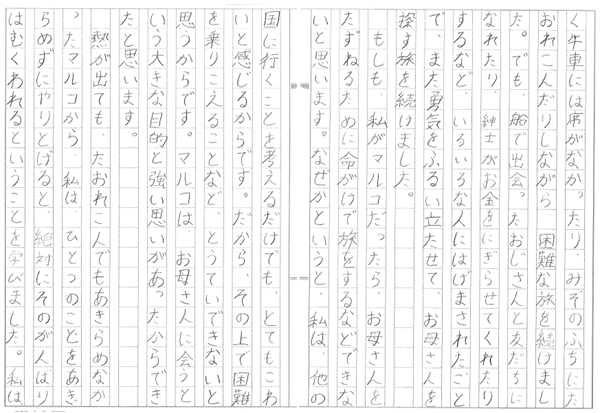 く牛車には席がなかったり、みぞのふちにた
おれこんだりしながら、困難な旅を続けまし
た。でも、船で出会ったおじさんと友だちに
なれたり、紳士がお金をにぎらせてくれたり
するなど、いろいろな人にはげまされたこと
で、また勇気をふるい立たせて、お母さんを
探す旅を続けました。
もしも、私がマルコだったら、お母さんを
たずねるために命がけで旅をするなどできな
いと思います。なぜかというと、私は、他の
国に行くことを考えるだけでも、とてもこわ
いと感じるからです。だから、その上で困難
を乗りこえることなど、とうていできないと
思うからです。マルコは、お母さんに会うと
いう大きな目的と強い思いがあったからでき
たと思います。
熱が出ても、たおれこんでもあきらめなか
ったマルコから、私は、ひとつのことをあき
らめずにやりとげると、絶対にそのがんばり
はむくわれるということを学びました。私は